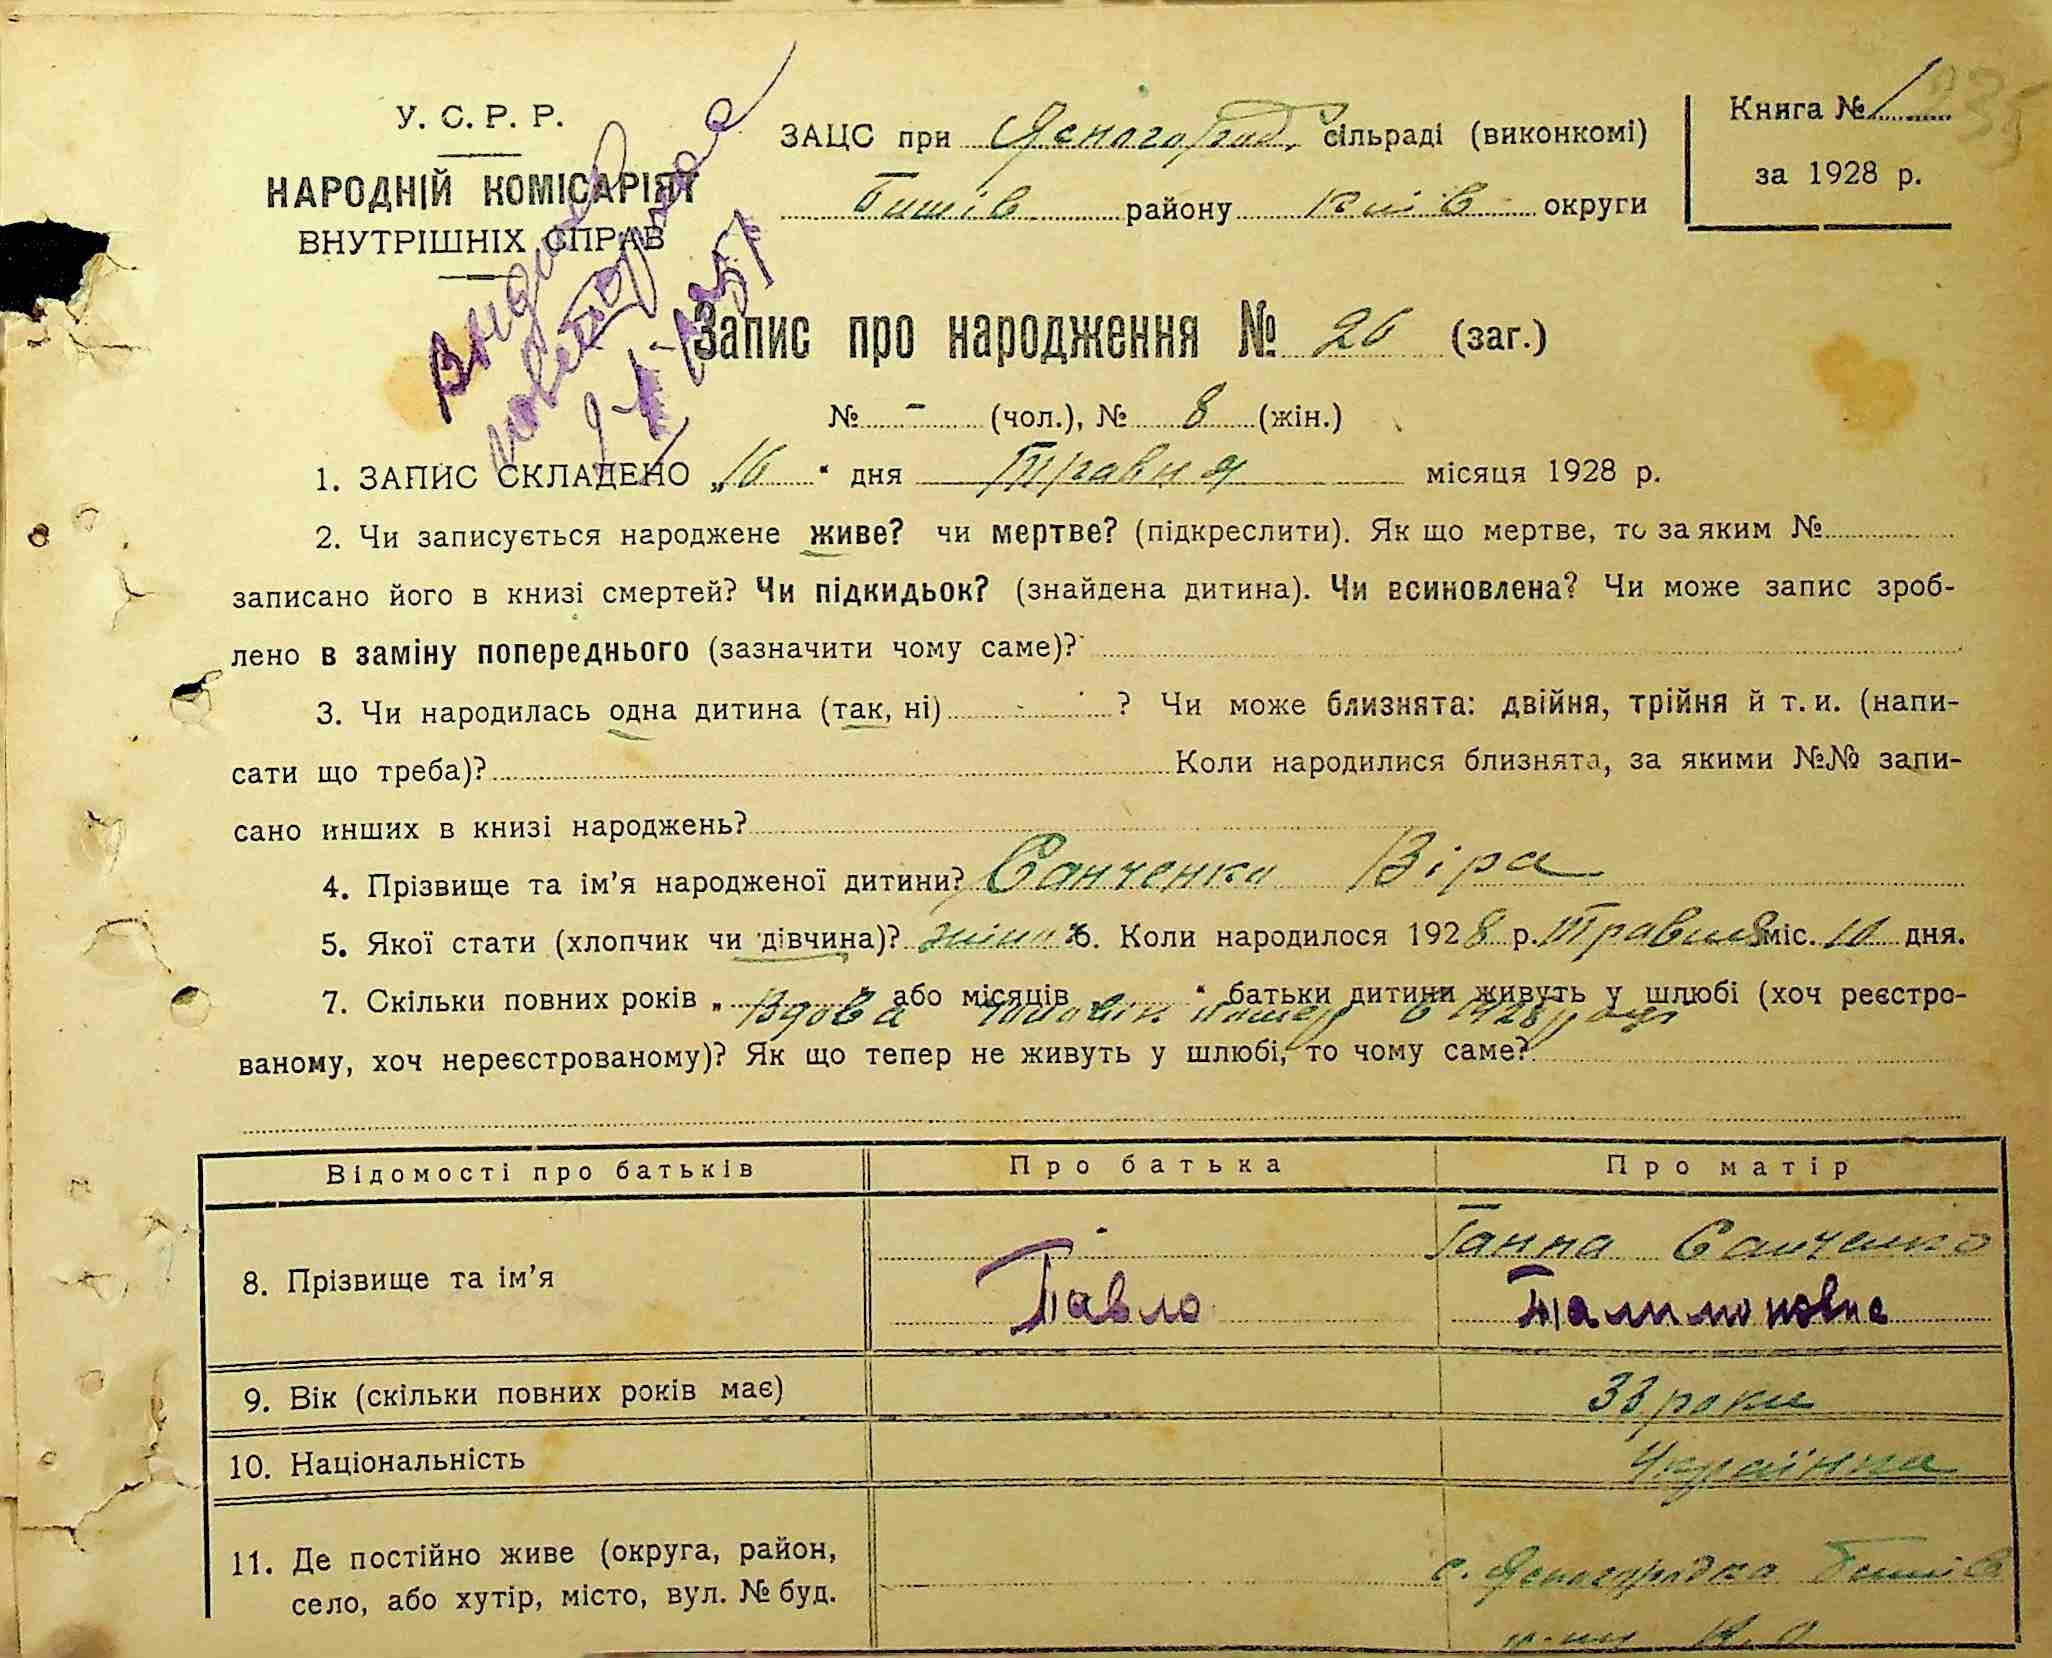 У. С. Р. Р.
НАРОДНІЙ КОМІСАРІЯТ
ВНУТРІШНІХ СПРАВ
ЗАЦС при Ясногород. сільраді (виконкомі)
Бишів району Київ округи
Книга № 1
за 1928 р.
235
Запис про народження № 26 (заг.)
№ - (чол.), № 8 (жін.)
1. ЗАПИС СКЛАДЕНО „16" дня Травня місяця 1928 р.
2. Чи записується народжене живе? чи мертве? (підкреслити). Як що мертве, то за яким №
записано його в книзі смертей? Чи підкидьок? (знайдена дитина). Чи всиновлена? Чи може запис зроб-
лено в заміну попереднього (зазначити чому саме)?
3. Чи народилась одна дитина (так, ні) ? Чи може близнята: двійня, трійня й т. и. (напи-
сати що треба)? Коли народилися близнята, за якими №№ запи-
сано инших в книзі народжень?
4. Прізвище та ім'я народженої дитини? Санченко Віра
5. Якої стати (хлопчик чи дівчина)? жіноч 6. Коли народилося 1928 р. Травня міс. 10 дня.
7. Скільки повних років „ " або місяців „ " батьки дитини живуть у шлюбі (хоч реєстро-
Вдова чоловік в 1928 р.
ваному, хоч нереєстрованому)? Як що тепер не живуть у шлюбі, то чому саме?
Відомості про батьків Про батька Про матір
8. Прізвище та ім'я
Ганна Санченко
Павло Палимоновна
9. Вік (скільки повних років має) 33 роки
10. Національність Українка
11. Де постійно живе (округа, район, с. Ясногородка Бишів
село, або хутір, місто, вул. № буд.
р-ну К. о